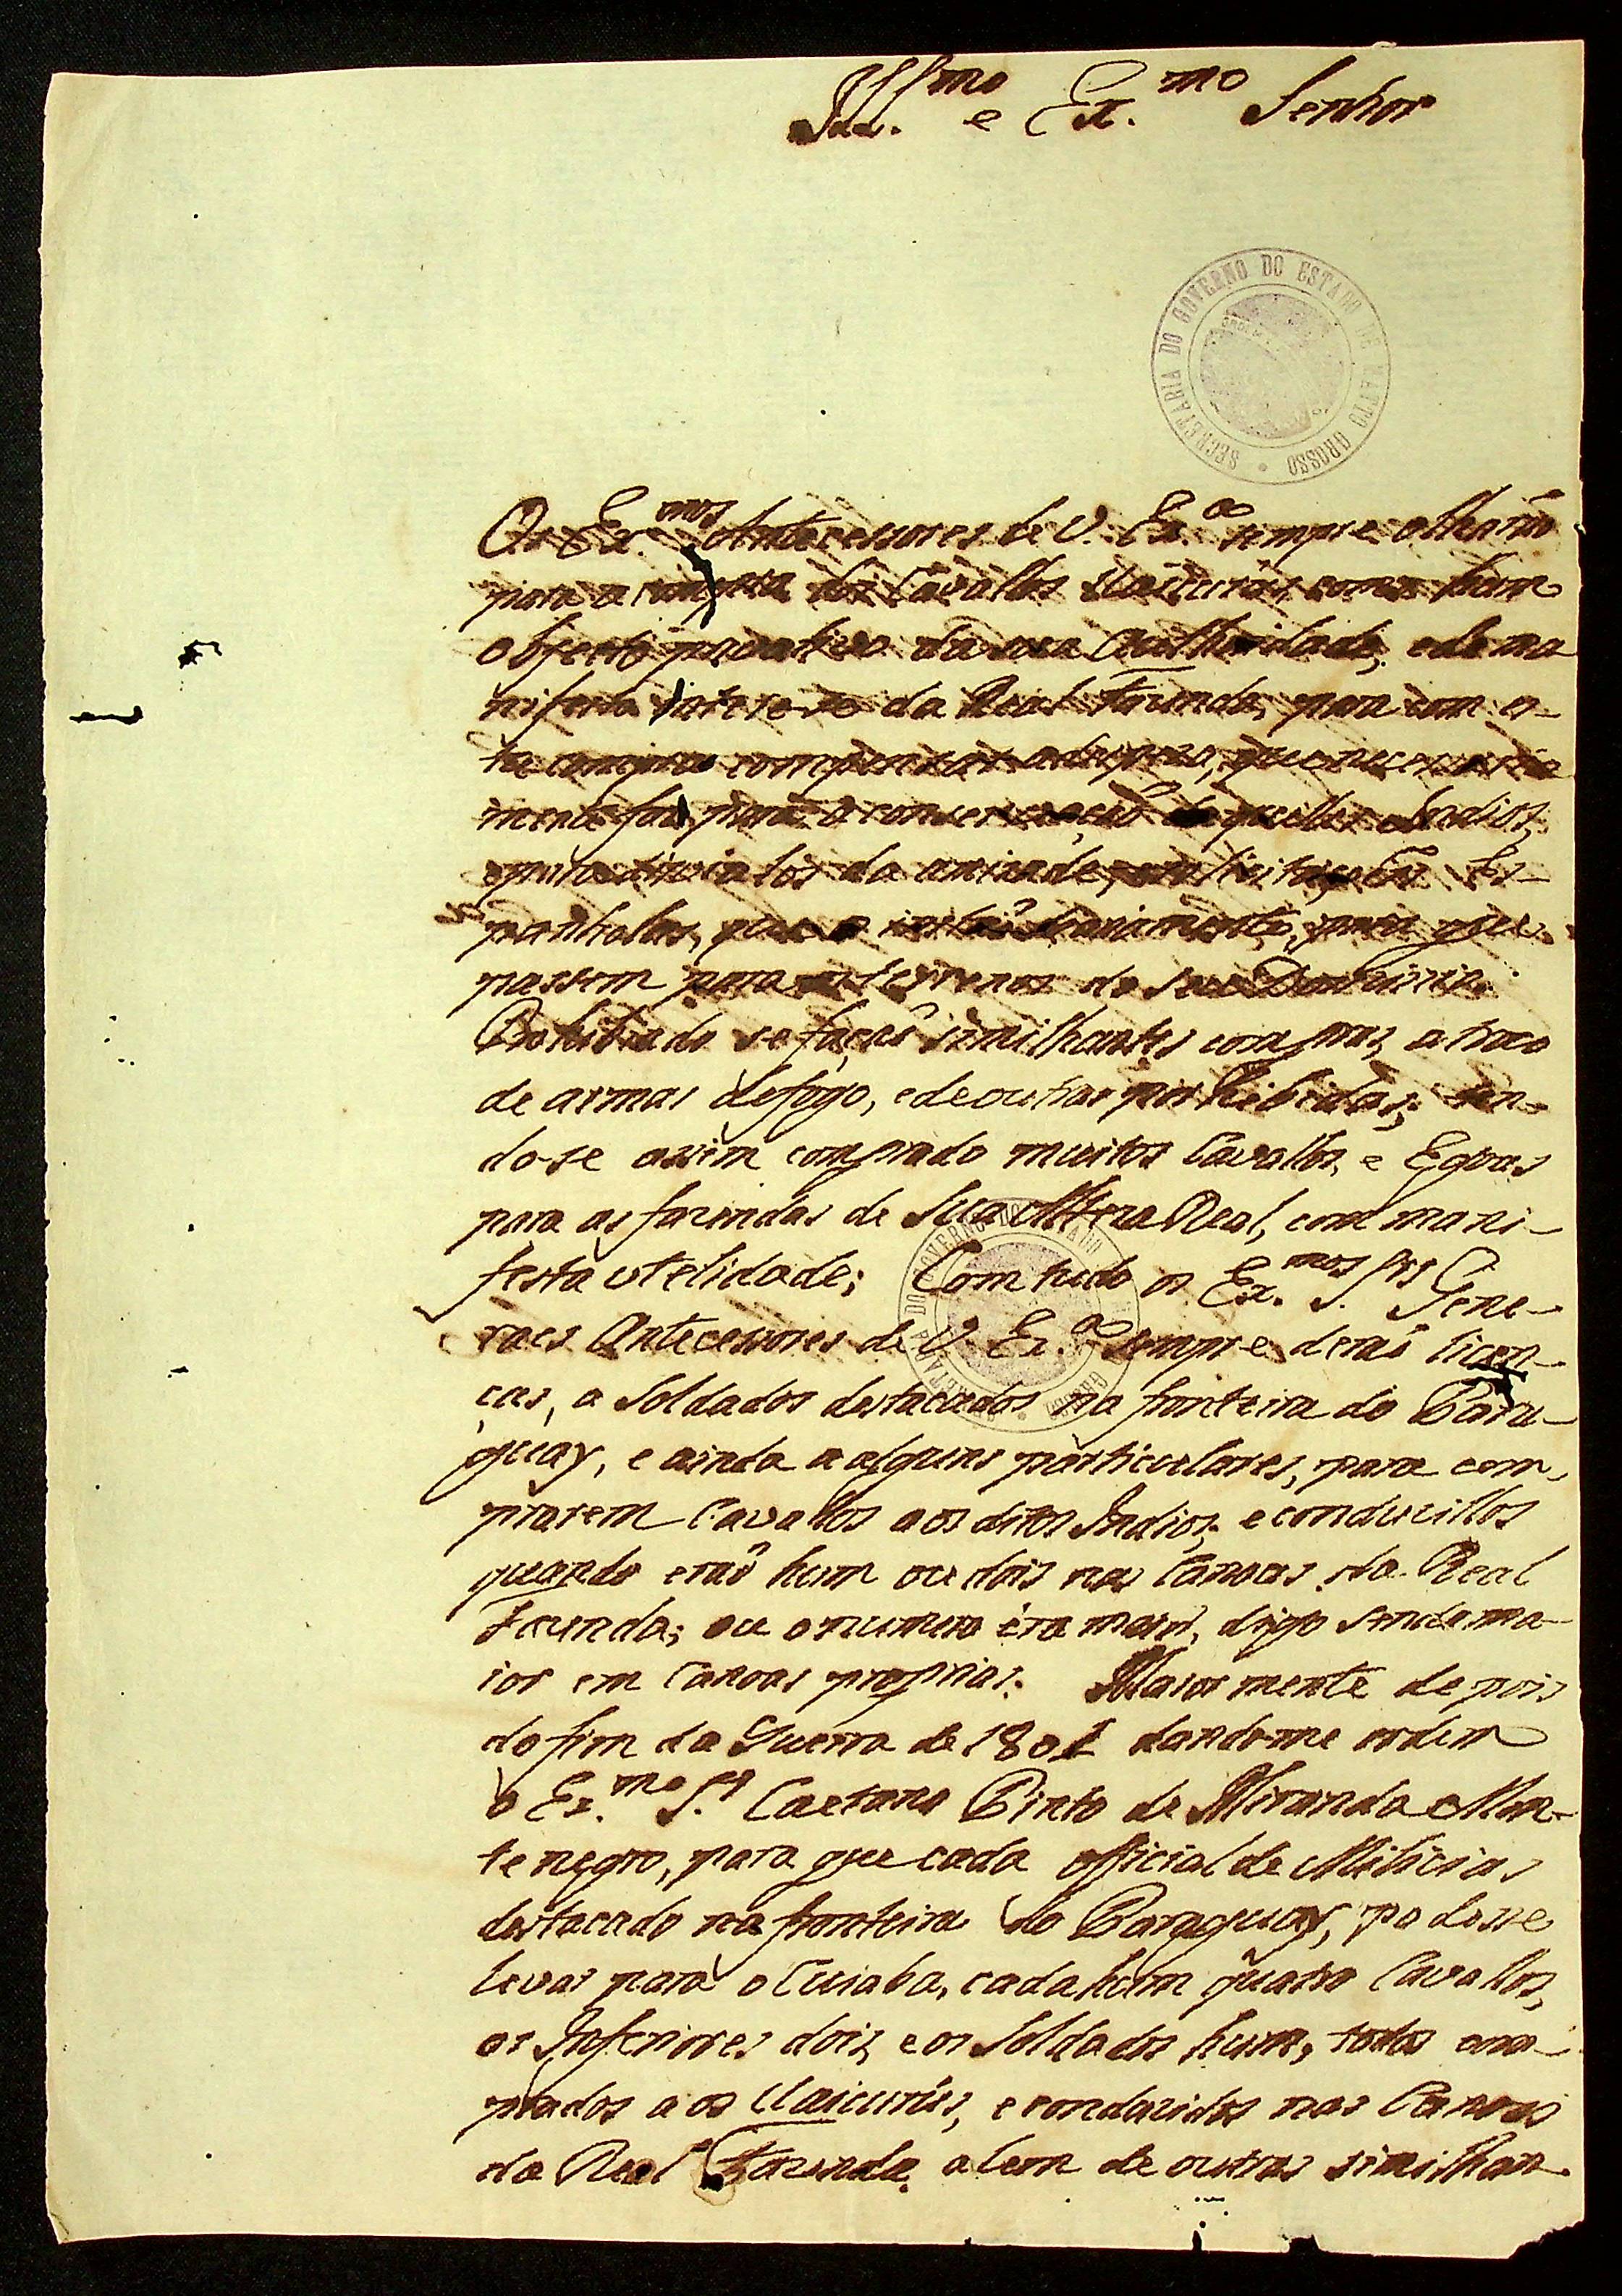 Ill.mo e Ex.mo Senhor
SECRETARIA DO GOVERNO DO ESTADO DE MATTO GROSSO
Os Ex.mos Antecessores de V. Ex.a sempre olharaõ
para a compra dos Cavallos Uaicurús como hum
objecto privativo da sua Authoridade, e de ma
nifesto interesse da Real Fazenda, para com es-
ta compra compensar a despeza, que necessaria
mente faz para a conservaçaõ daquelles Indios,
e para da amizade, Es-
panholas, que diariamente, para que
passem para os terrenos do seu Dominio.
Prohibindo se façaõ similhantes compras, a troco
de armas de fogo, e de outras prohibidas; ten-
do-se assim comprado muitos Cavallos, e Egoas
para as fazendas de Sua Alteza Real, com mani-
festa utelidade; Com tudo os Ex.mos S.res Gene-
raes Antecessores de V. Ex.a sempre deraõ licen-
ças, a Soldados destacados na fronteira do Para-
guay, e ainda a alguns particulares, para com-
prarem Cavallos aos ditos Indios, e conduzillos
quando eraõ hum ou dois nas Canoas da Real
Fazenda; ou o numero éra maior, digo sendo ma-
ior em Canoas proprias. Maiormente depois
do fim da Guerra de 1801 dando-me ordem
o Ex.mo S.r Caetano Pinto de Miranda Mon-
tenegro, para que cada official de Milicias
destacado na fronteira do Paraguay, podesse
levar para o Cuiaba, cada hum quatro Cavallos,
os Inferiores dois, e os Soldados hum, todos com-
prados aos Uaicurús, e conduzidos nas Canoas
da Real Fazenda, alem de outras similhan-